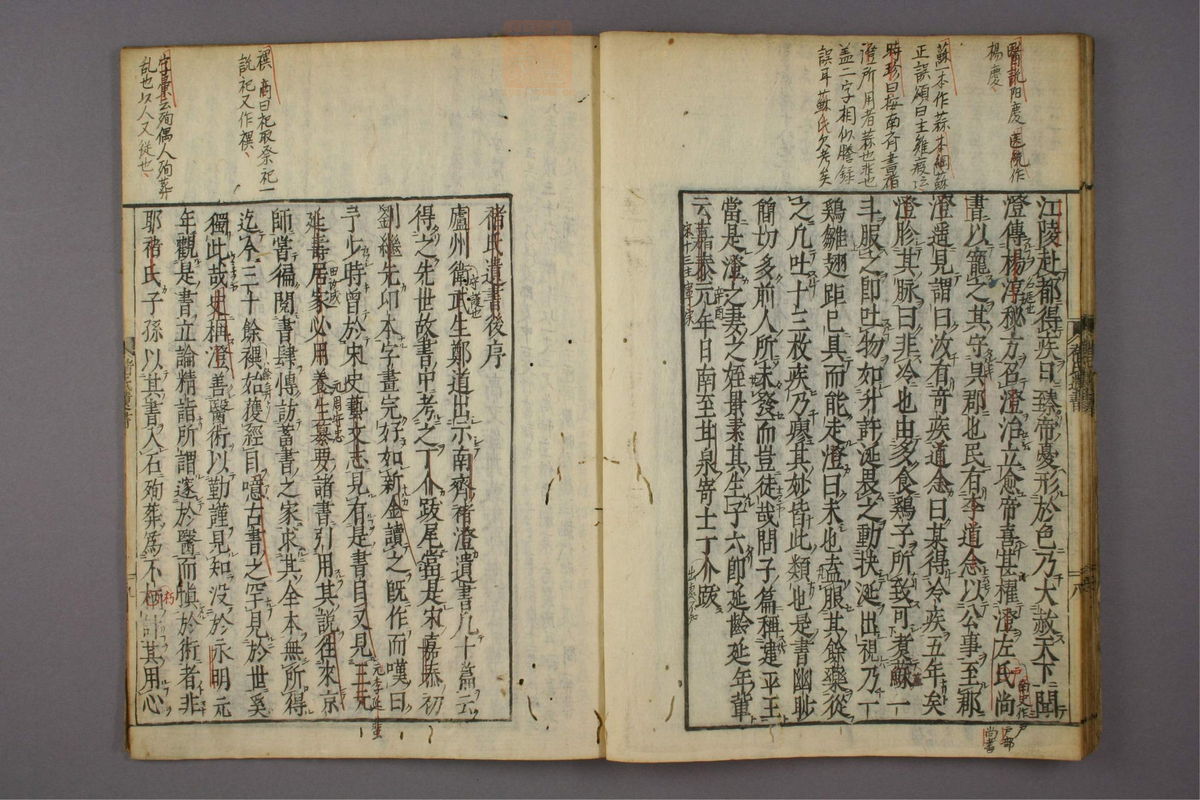 醫説陽慶医統作
楊慶
蘇本作蒜本綱蘇
正誤頌曰主雞瘕
時珍曰按南斉書褚
澄所用者蒜也非也
盖二字相似謄録
誤耳蘇氏欠考矣
江陵赴都得疾日臻帝憂形於色乃大赦天下聞
澄傳楊淳秘方召澄治立愈帝喜甚權澄左氏尚
書以寵之其守呉郡也民有李道念以公事至郡
澄遥見謂曰汝有奇疾道念曰某得冷疾五年矣
澄胗其脉曰非冷也由多食鶏子所致可煮蘇一
斗服之即吐物如升許涎畏之動抉涎出視乃一
鶏雛翅距已具而能走澄曰未也盍服其餘藥從
之凡吐十三枚疾乃瘳其妙皆此類也是書幽眇
簡切多前人所未發而豈徒哉問子篇稱建平王
當是澄之妻之姪景素其生子六即延齡延年輩
云嘉泰元年日南至甘泉寄士丁介跋
禩商曰祀取祭祀一
説祀又作禩
字彙云殉偶人殉葬
乱也以人又従也
褚氏遺書後序
廬州衛武生鄭道出示南齊褚澄遺書凡十篇云
得之先世故書中考之丁介跋尾當是宋嘉泰初
劉繼先印本字畫完好如新余讀之既作而嘆曰
予少時曽於宋史藝文志見有是書目又見三元
延壽居家必用養生纂要諸書引用其説往來京
師嘗徧閱書肆博訪蓄書之家求其全本無所得
迄今三十餘禩始獲經目噫古書之罕見於世奚
獨此哉史稱澄善醫術以勤謹見知没於永明元
年觀是書立論精詣所謂邃於醫而慎於術者非
耶褚氏子孫以其書入石殉葬爲不朽計其用心